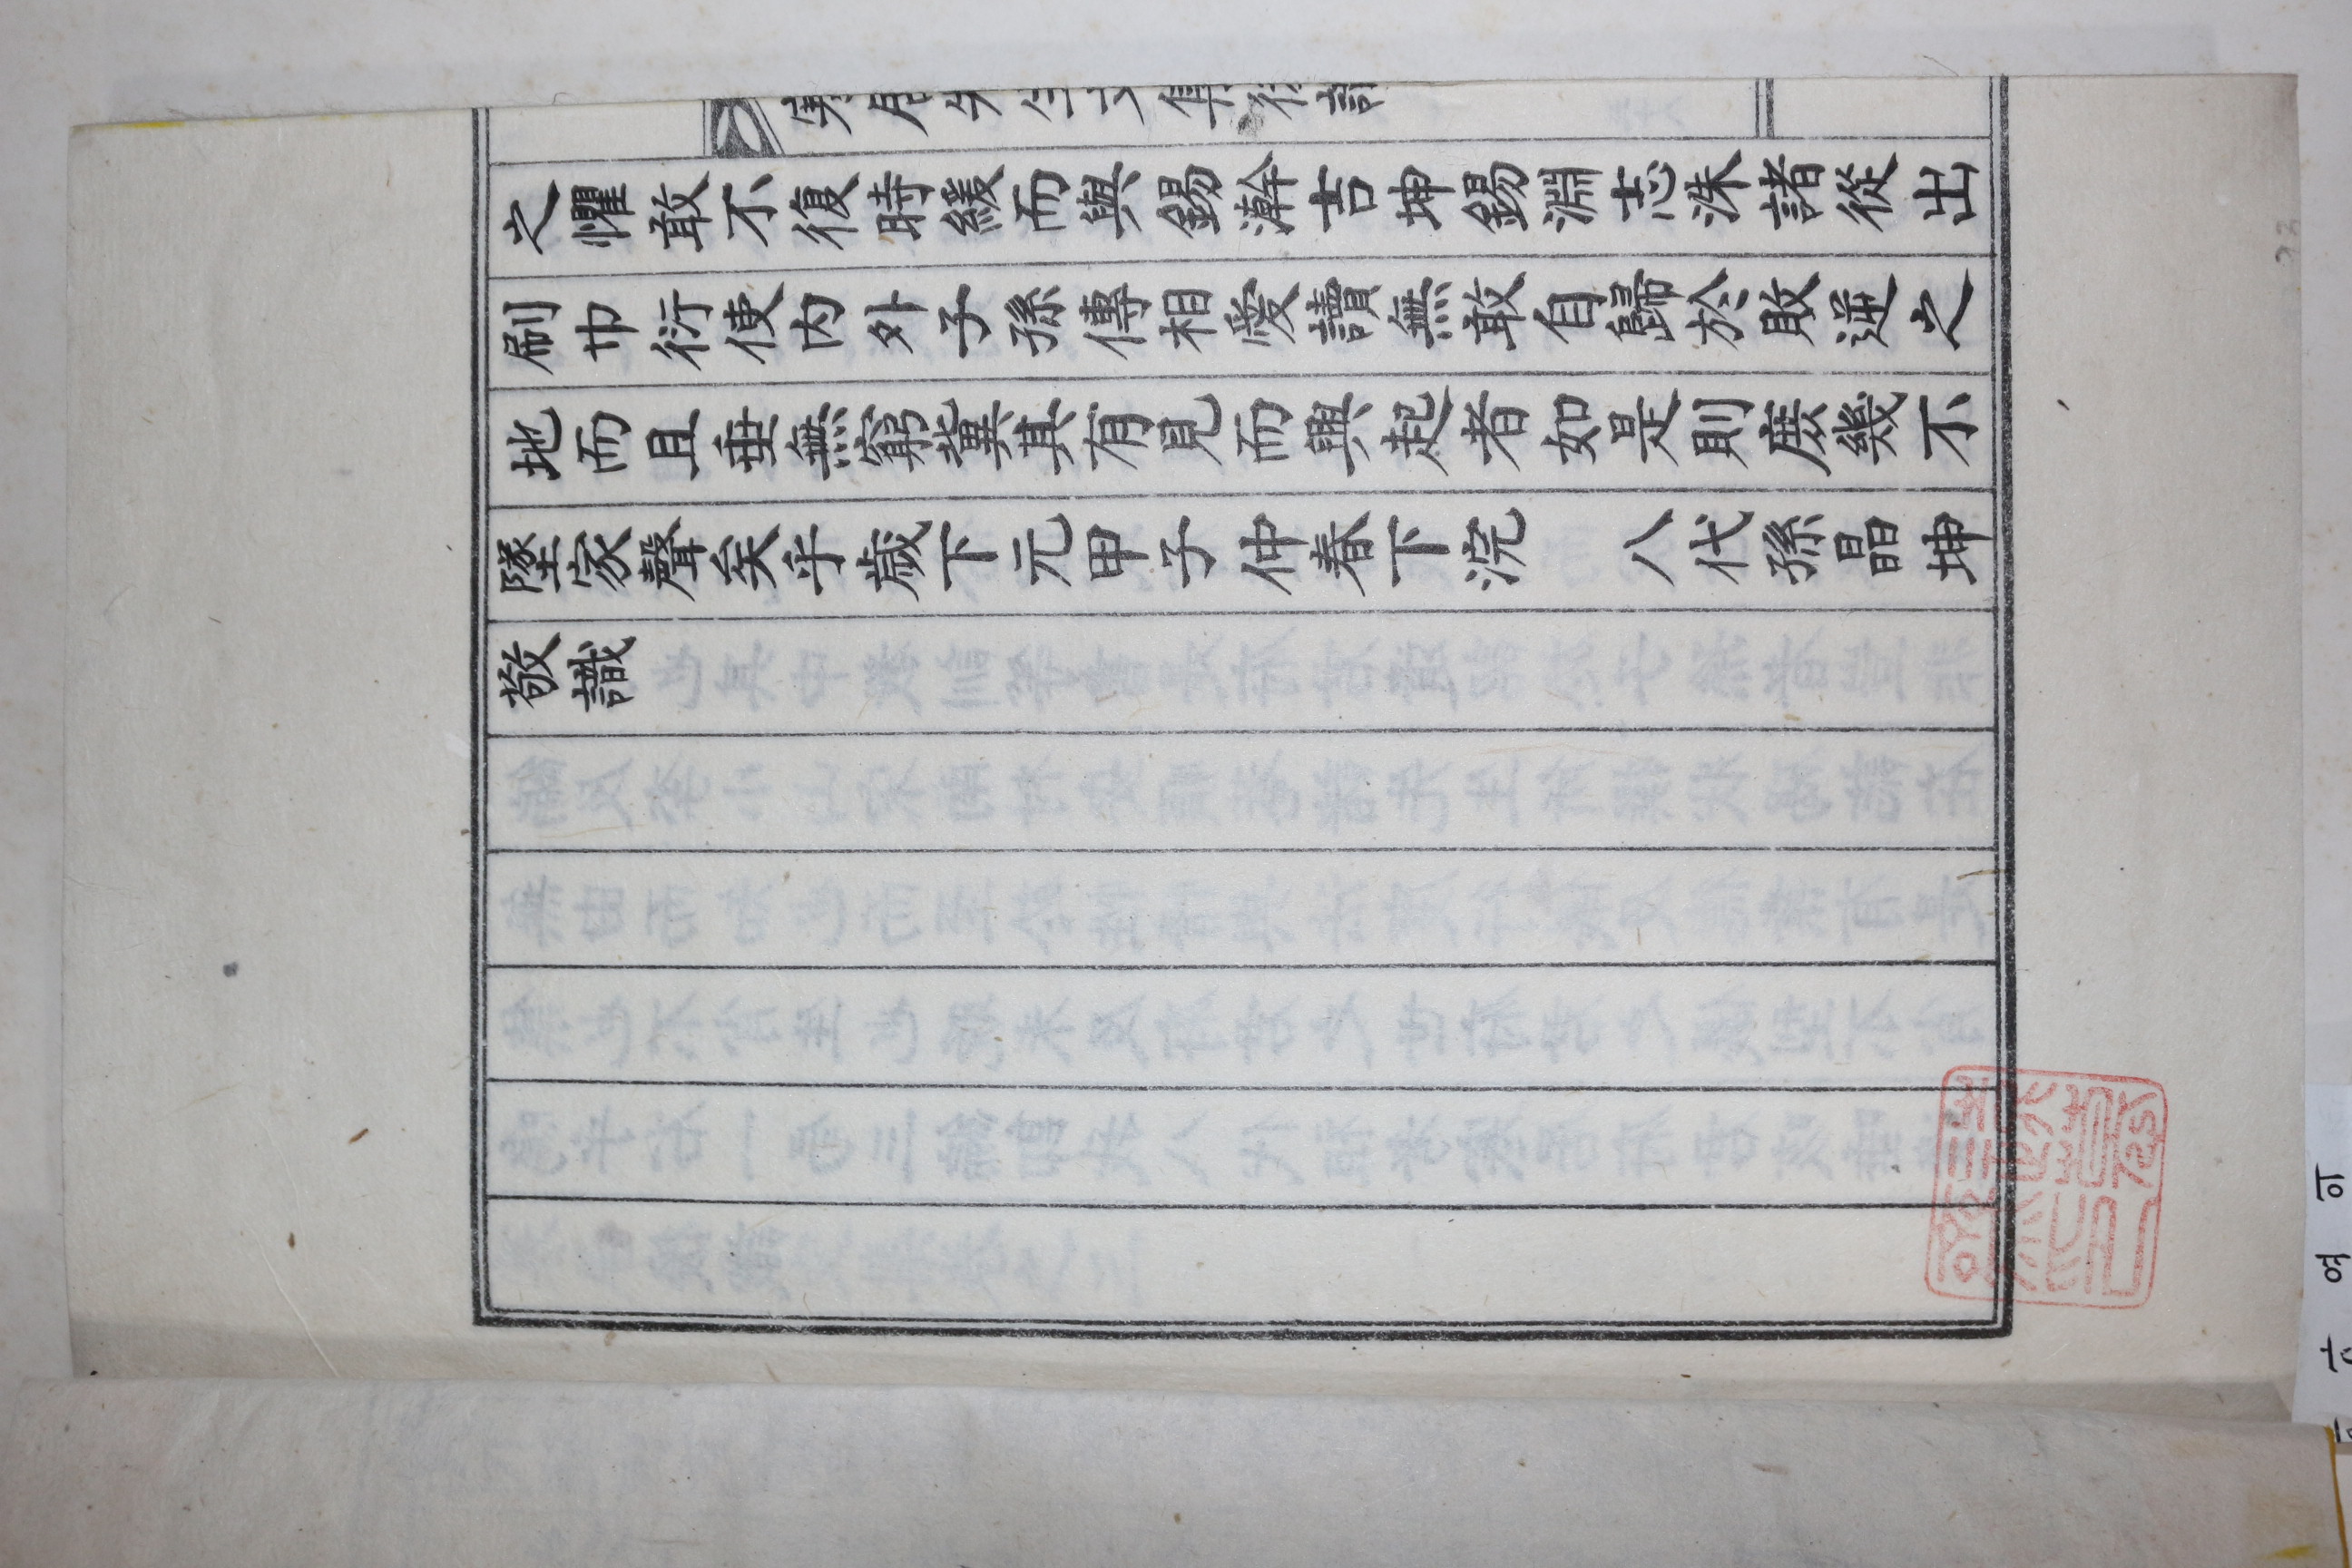 之懼敢不復時緩而與錫澣吉坤錫淵志洙諸從出
刷巾衍使內外子孫傳相愛讀無敢自歸於敗逆之
地而且垂無窮冀其有見而興起者如是則庶幾不
墜家聲矣乎歲下元甲子仲春下浣 八代孫晶坤
敬識